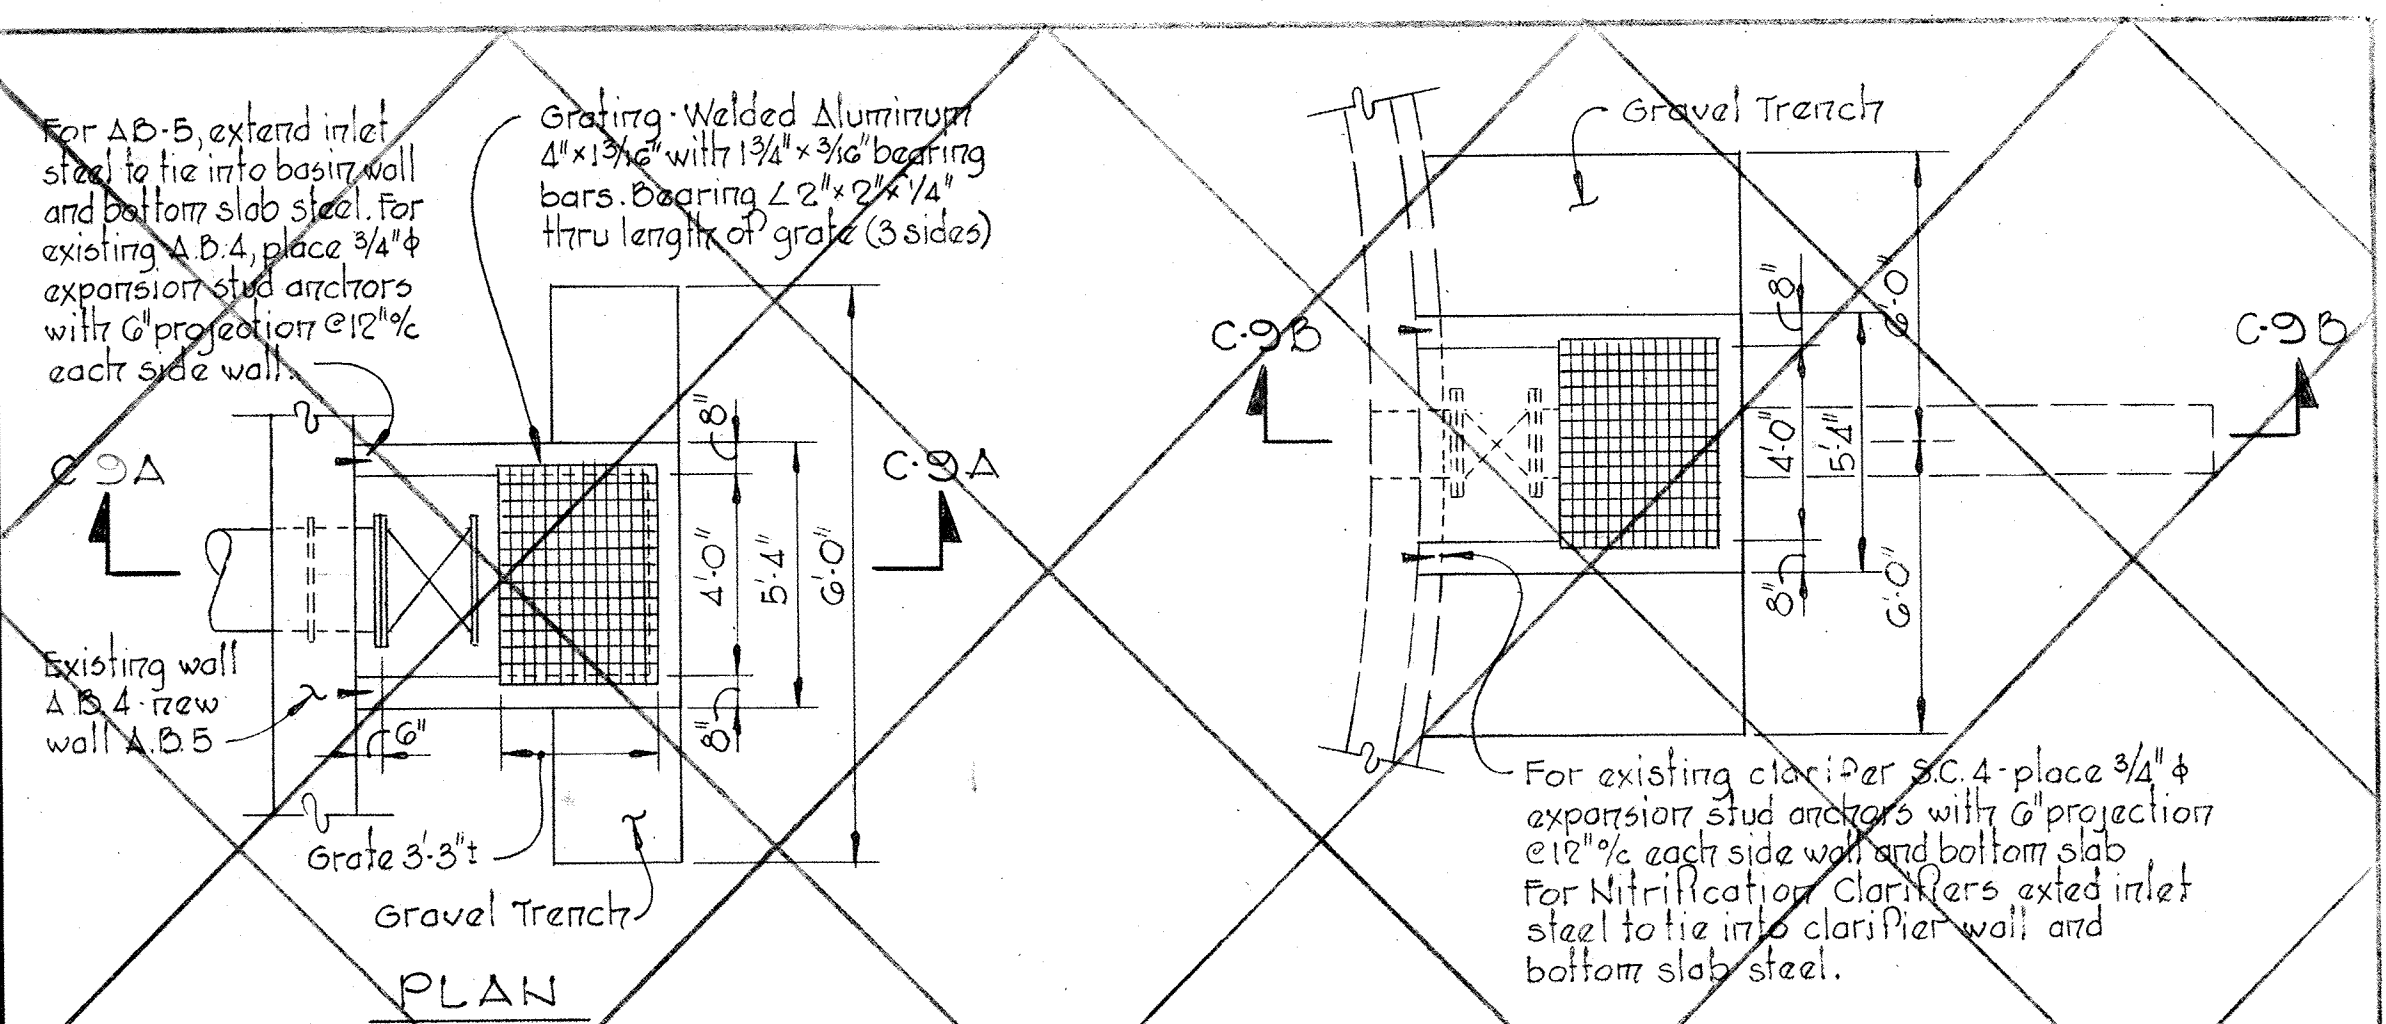 For AB-5, extend inlet
steel to tie into basin wall
and bottom slab steel. For
existing A.B.4, place 3/4"ϕ
expansion stud anchors
with 6" projection @12"%c
each side wall.
Grating - Welded Aluminum
4"×1 3/16" with 1 3/4"×3/16" bearing
bars. Bearing ∠ 2"×2"×1/4"
thru length of grate (3 sides)
C-9A
C-9A
8"
4'-0"
5'-4"
6'-0"
8"
Existing wall
A.B.4 - new
wall A.B.5
6"
Grate 3'-3"±
Gravel Trench
PLAN
Gravel Trench
C-9B
C-9B
8"
6'-0"
4'-0"
5'-4"
8"
6'-0"
For existing clarifier S.C. 4 - place 3/4"ϕ
expansion stud anchors with 6" projection
@12"%c each side wall and bottom slab
For Nitrification Clarifiers exted inlet
steel to tie into clarifier wall and
bottom slab steel.